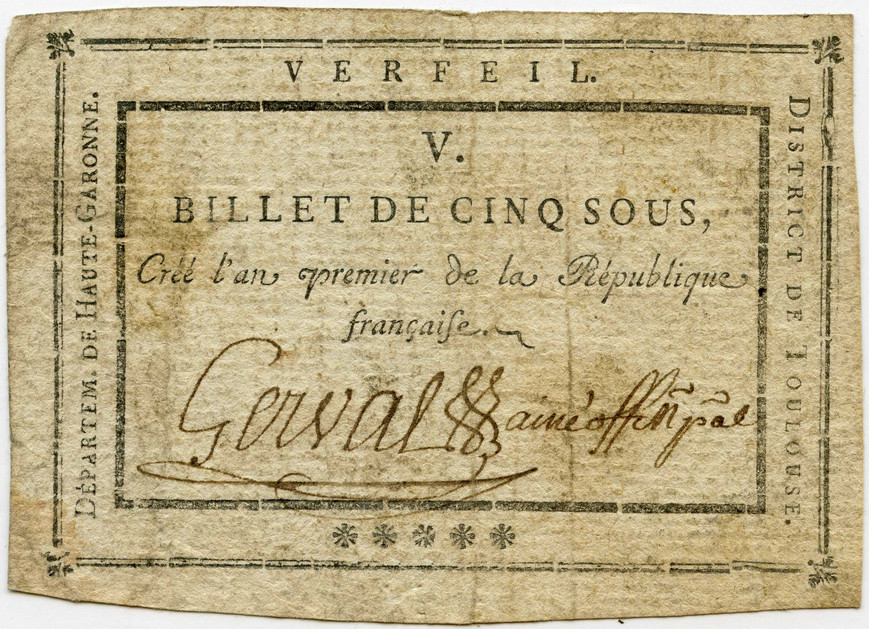 VERFEIL.
DÉPARTEM. DE HAUTE-GARONNE.
V.
BILLET DE CINQ SOUS,
Créé l'an premier de la République
françaiſe.
Gerval ainé off. m.pal
DISTRICT DE TOULOUSE.